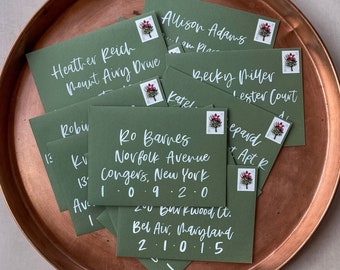 Allison Adams
Plan
Heather Reich
Mount Airy Drive
Becky Miller
lester Court
Katel
Robin
epard
Apt R
13
Kr
13
Ro Barnes
Norfolk Avenue
Congers, New York
1 · 0 · 9 · 2 · 0
Burkwood Ct.
Bel Air, Maryland
2 · 1 · 0 · 1 · 5